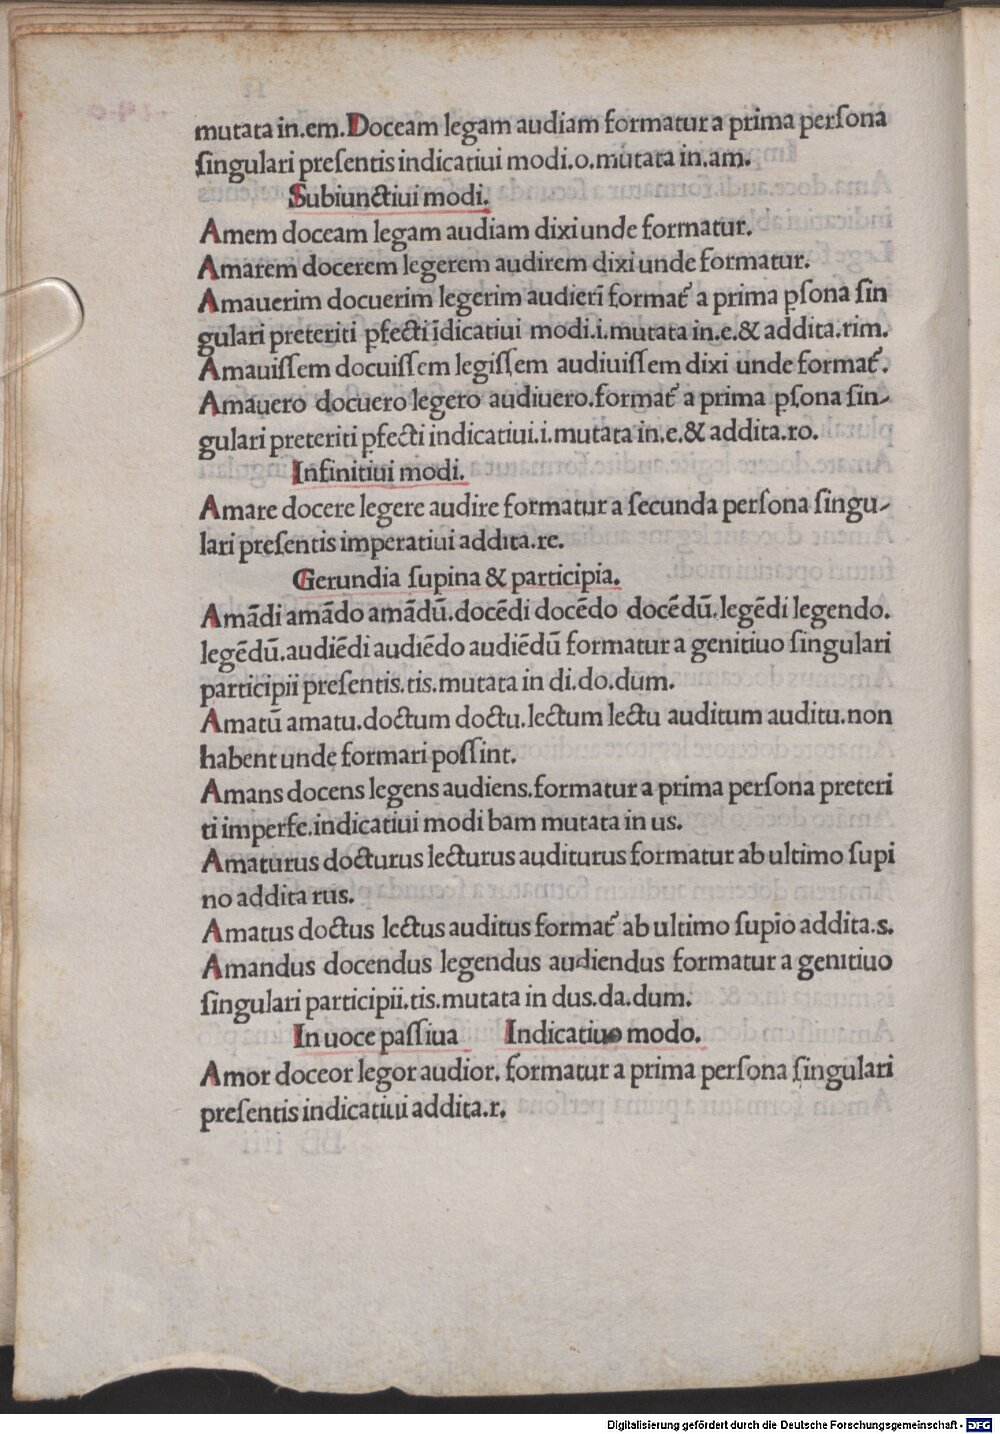 mutata in.em.Doceam legam audiam formatur a prima perſona
ſingulari preſentis indicatiui modi.o.mutata in.am.
Subiunctiui modi.
Amem doceam legam audiam dixi unde formatur.
Amarem docerem legerem audirem dixi unde formatur.
Amauerim docuerim legerim audierī format᷑ a prima ꝑſona ſin
gulari preteriti ꝑfecti īdicatiui modi.i.mutata in.e.& addita.rim.
Amauiſſem docuiſſem legiſſem audiuiſſem dixi unde format᷑.
Amauero docuero legero audiuero.format᷑ a prima ꝑſona ſin-
gulari preteriti ꝑfecti indicatiui.i.mutata in.e.& addita.ro.
Infinitiui modi.
Amare docere legere audire formatur a ſecunda perſona ſingu-
lari preſentis imperatiui addita.re.
Gerundia ſupina & participia.
Amādi amādo amādū.docēdi docēdo docēdū.legēdi legendo.
legēdū.audiēdi audiēdo audiēdū formatur a genitiuo ſingulari
participii preſentis.tis.mutata in di.do.dum.
Amatū amatu.doctum doctu.lectum lectu auditum auditu.non
habent unde formari poſſint.
Amans docens legens audiens.formatur a prima perſona preteri
ti imperfe.indicatiui modi bam mutata in us.
Amaturus docturus lecturus auditurus formatur ab ultimo ſupi
no addita rus.
Amatus doctus lectus auditus format᷑ ab ultimo ſupio addita.s.
Amandus docendus legendus audiendus formatur a genitiuo
ſingulari participii.tis.mutata in dus.da.dum.
In uoce paſſiua Indicatiuo modo.
Amor doceor legor audior. formatur a prima perſona ſingulari
preſentis indicatiui addita.r.
Digitalisierung gefördert durch die Deutsche Forschungsgemeinschaft - DFG